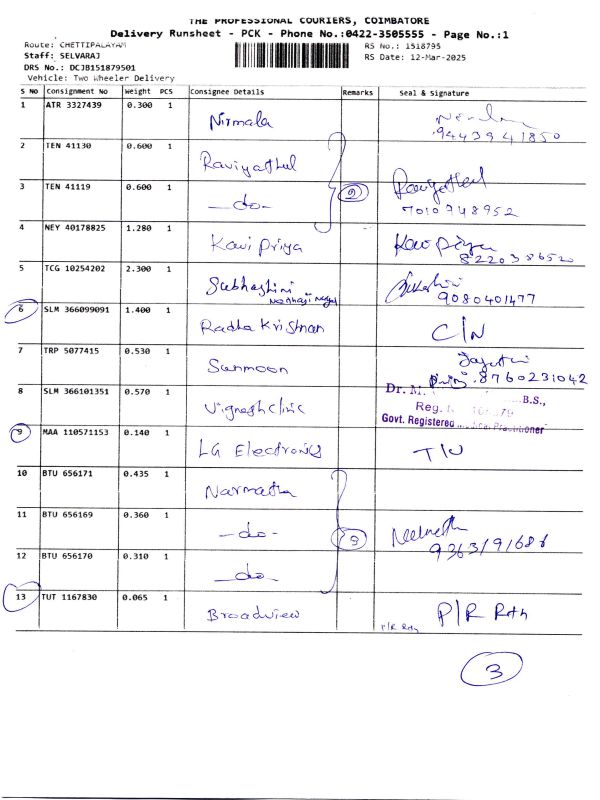 THE PROFESSIONAL COURIERS, COIMBATORE
Delivery Runsheet - PCK - Phone No.:0422-3505555 - Page No.:1
Route: CHETTIPALAYAM
RS No.: 1518795
Staff: SELVARAJ
RS Date: 12-Mar-2025
DRS No.: DCJB151879501
Vehicle: Two Wheeler Delivery
S No Consignment No Weight PCS Consignee Details Remarks Seal & Signature
1 ATR 3327439 0.300 1 Nirmala
9443941850
2 TEN 41130 0.600 1 Raviyathul
3 TEN 41119 0.600 1 -do- 2
7010948952
4 NEY 40178825 1.280 1 Kavi Priya Kavi Priya
8220386520
5 TCG 10254202 2.300 1 Subhashini
9080401477
6 SLM 366099091 1.400 1 Radha Krishnan C/N
7 TRP 5077415 0.530 1 Sunmoon
8760231042
8 SLM 366101351 0.570 1 Vignesh Clinic
Dr. M. B.S.,
Reg.
Govt. Registered Medical Practitioner
9 MAA 110571153 0.140 1 LG Electronics
10 BTU 656171 0.435 1 Narmatha
11 BTU 656169 0.360 1 -do- 3
9363191686
12 BTU 656170 0.310 1 -do-
13 TUT 1167830 0.065 1 Broadview P/R Rtn P/R Rtn
3